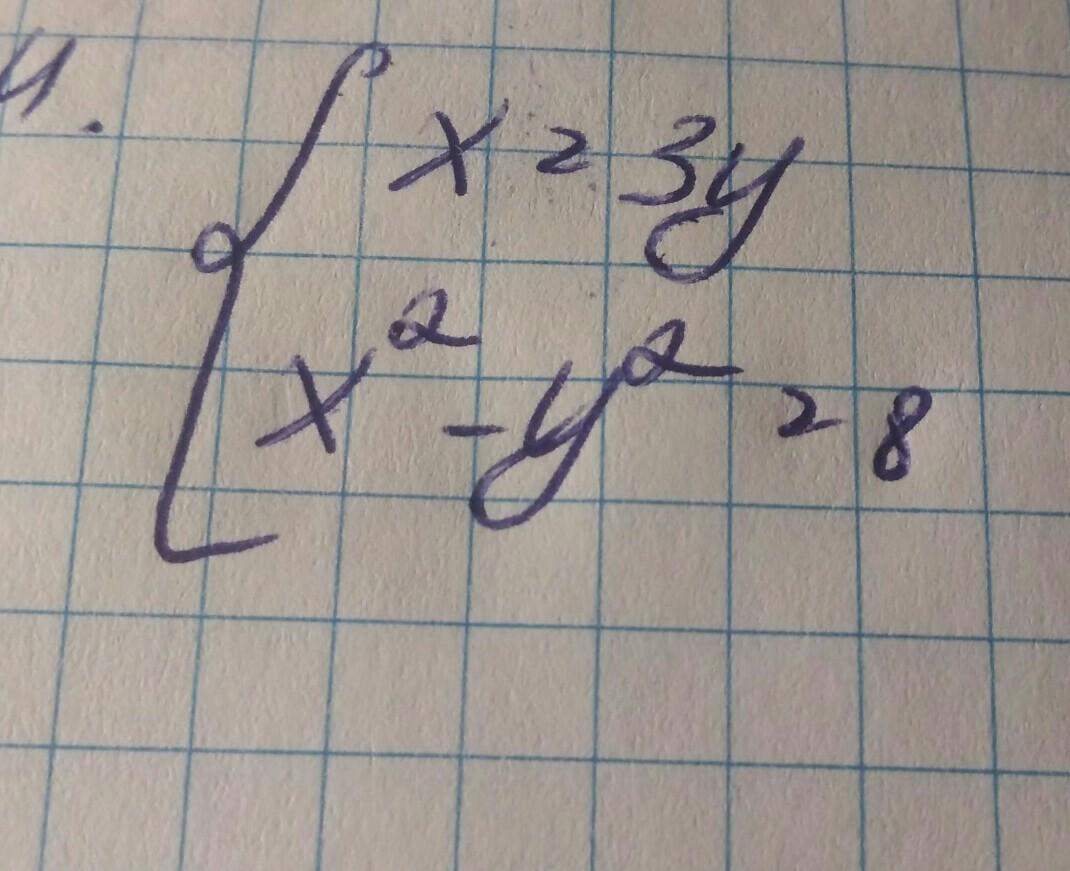 4.
x = 3y
x² - y² = 8